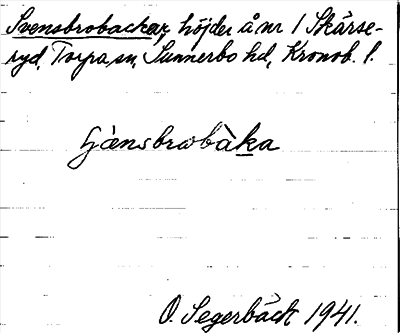 Svensbrobackar, höjder å nr 1 Skärse-
ryd, Torpa sn, Sunnerbo hd, Kronob. l.
bàka
O. Segerbäck 1941.